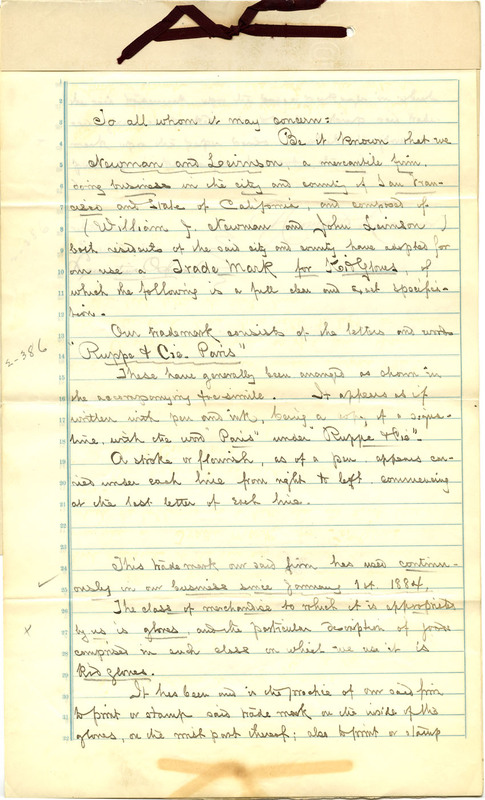 To all whom it may concern:
Be it known that we
Newman and Levinson, a mercantile firm,
doing business in the city and county of San Fran-
cisco and State of California, and composed of
(William J. Newman and John Levinson)
both residents of the said city and county have adopted for
our use a Trade Mark for Kid Gloves, of
which the following is a full clear and exact specifica-
tion.
Our trademark consists of the letters and words
"Ruppe & Cie. Paris"
These have generally been arranged as shown in
the accompanying facsimile. It appears as if
written with pen and ink, being a copy of a signa-
ture, with the word "Paris" under "Ruppe & Cie".
A stroke or flourish, as of a pen appears car-
ried under each line from right to left, commencing
at the last letter of each line.
This trade mark our said firm has used continu-
ously in our business since January 1st. 1884.
The class of merchandise to which it is appropriated
by us is gloves, and the particular description of goods
comprised in such class on which we use it is
Kid gloves.
It has been and is the practice of our said firm
to print or stamp said trade mark on the inside of the
gloves, on the wrist part thereof; also to print or stamp
2-386
x